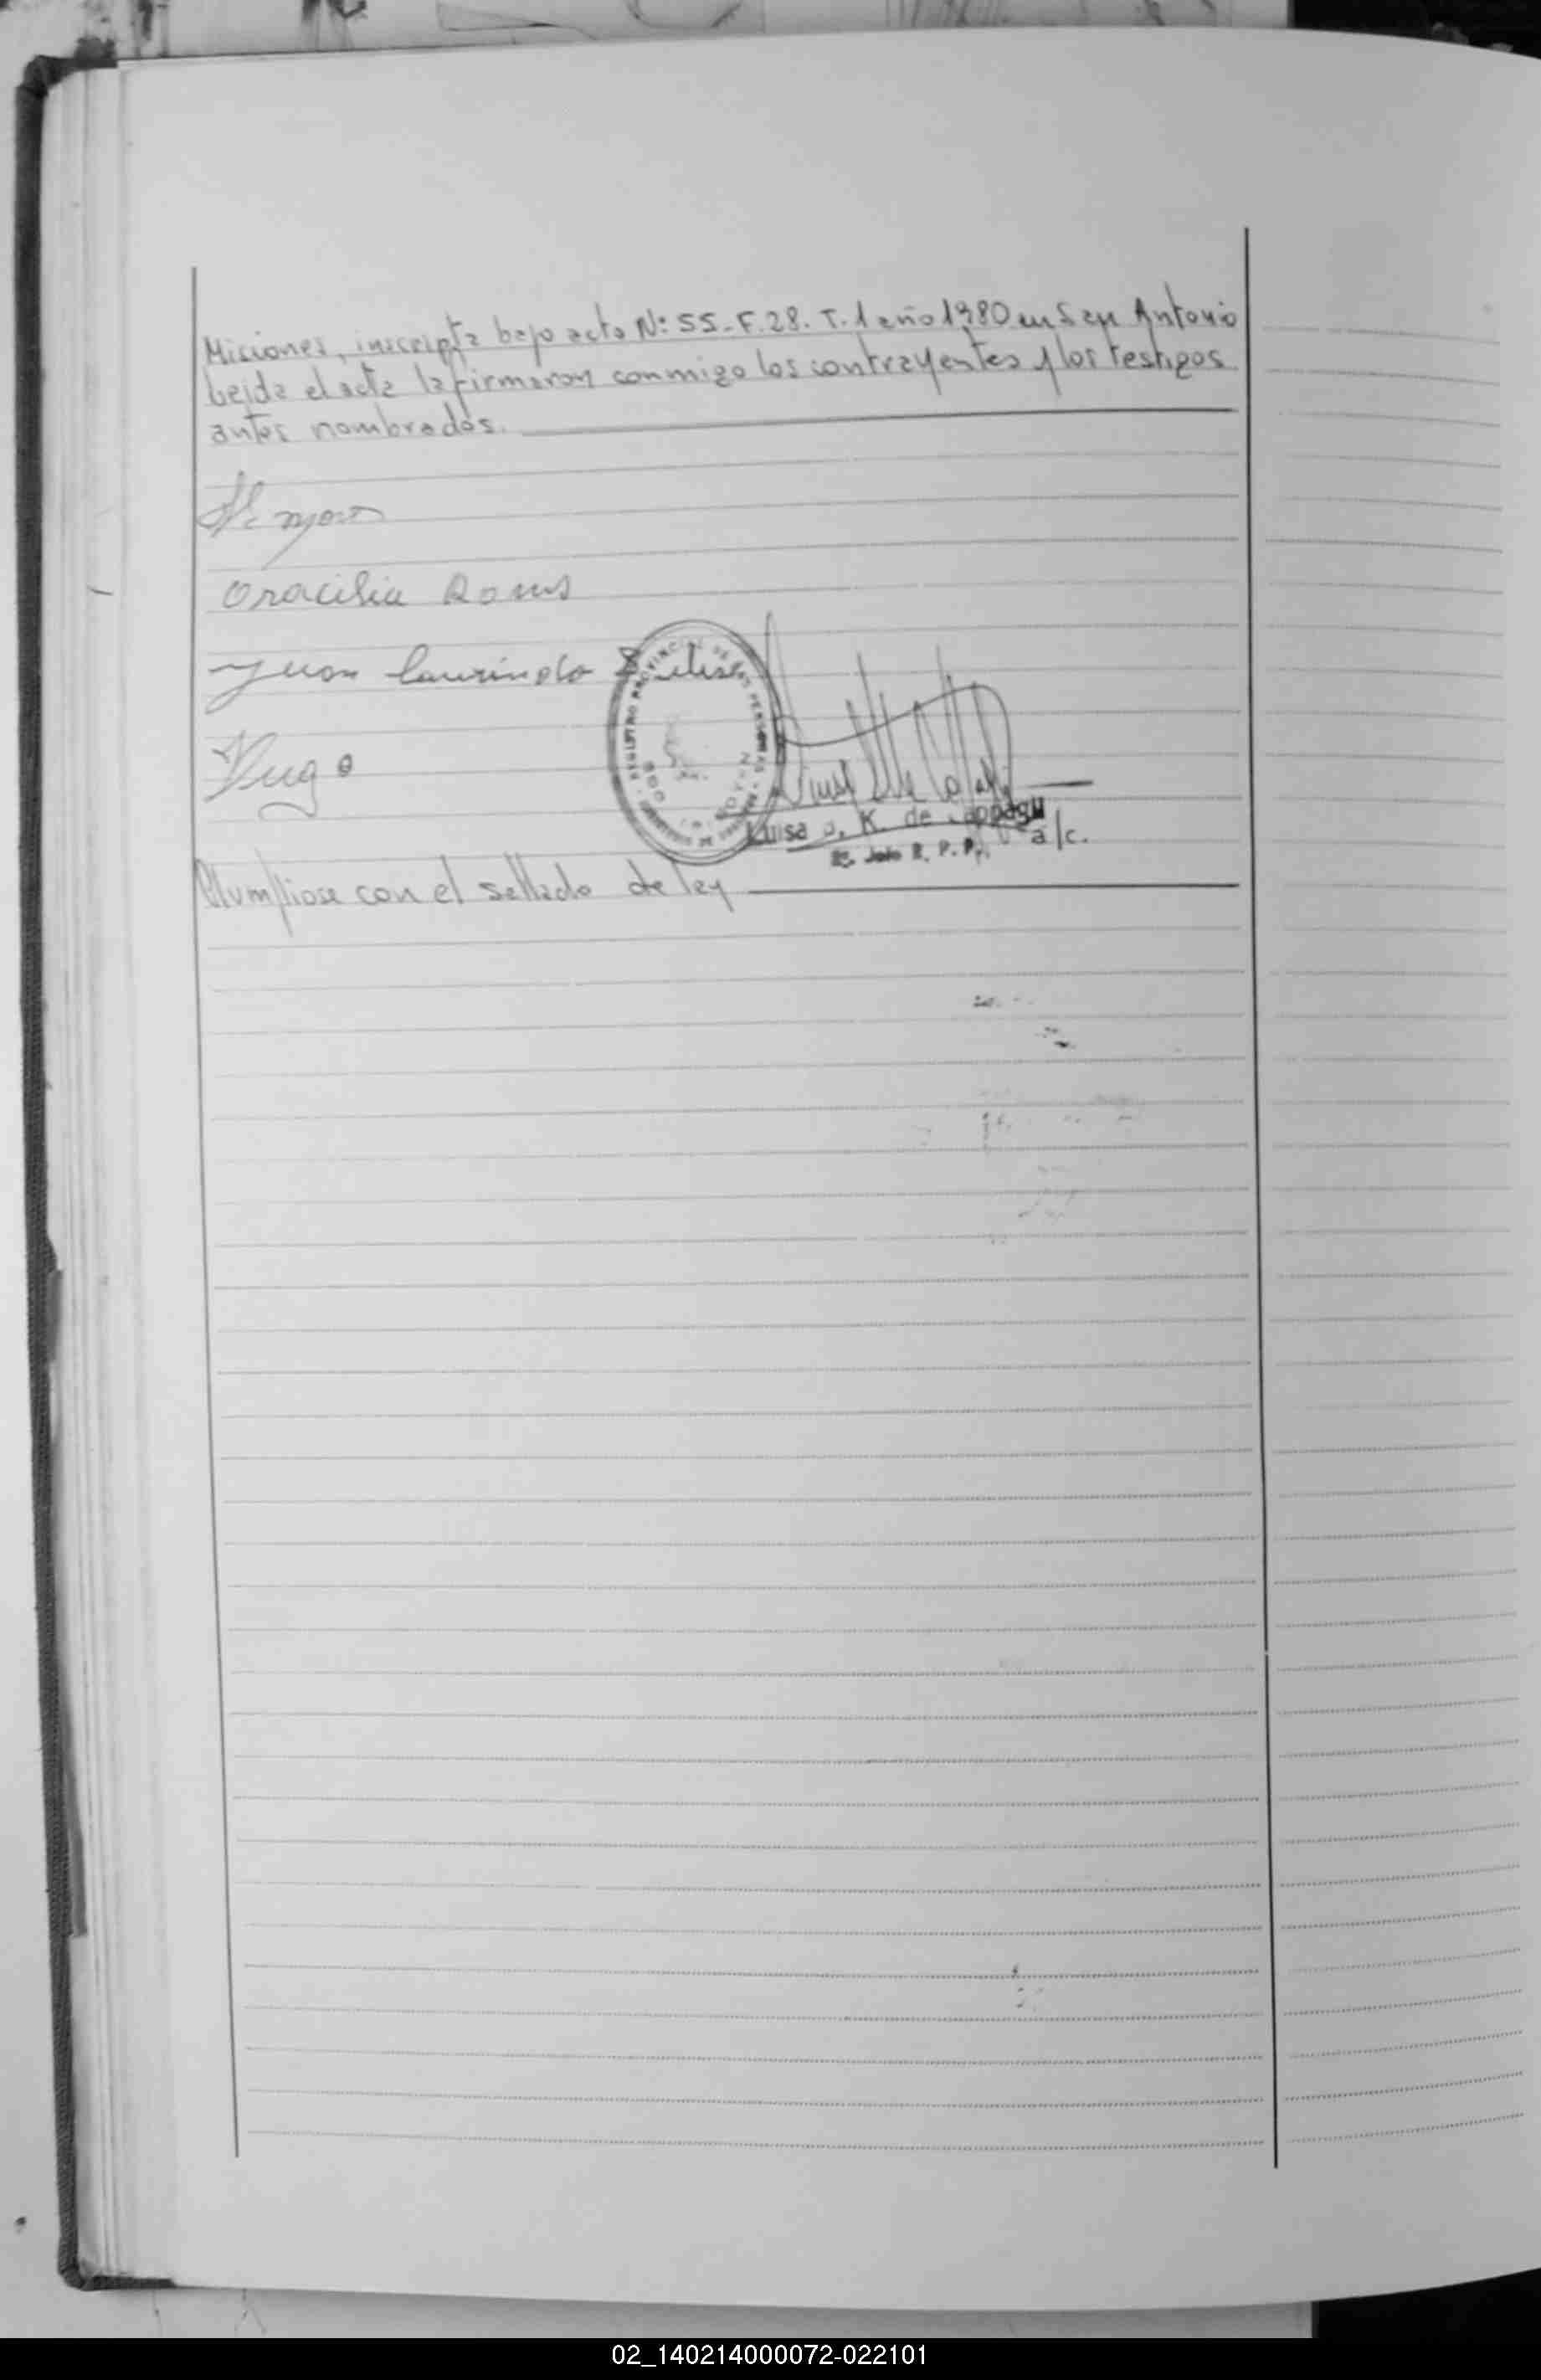 Misiones, inscripta bajo acta Nº 55-F.28. T.1 año 1980 en San Antonio
Leida el acta la firmaron conmigo los contrayentes y los testigos
antes nombrados.
Oracilia Ramos
Juan Laurindo
Hugo
REGISTRO PROVINCIAL DE LAS PERSONAS
Luisa K. de
a/c.
R. P. P.
Cumpliose con el sellado de ley
02_140214000072-022101